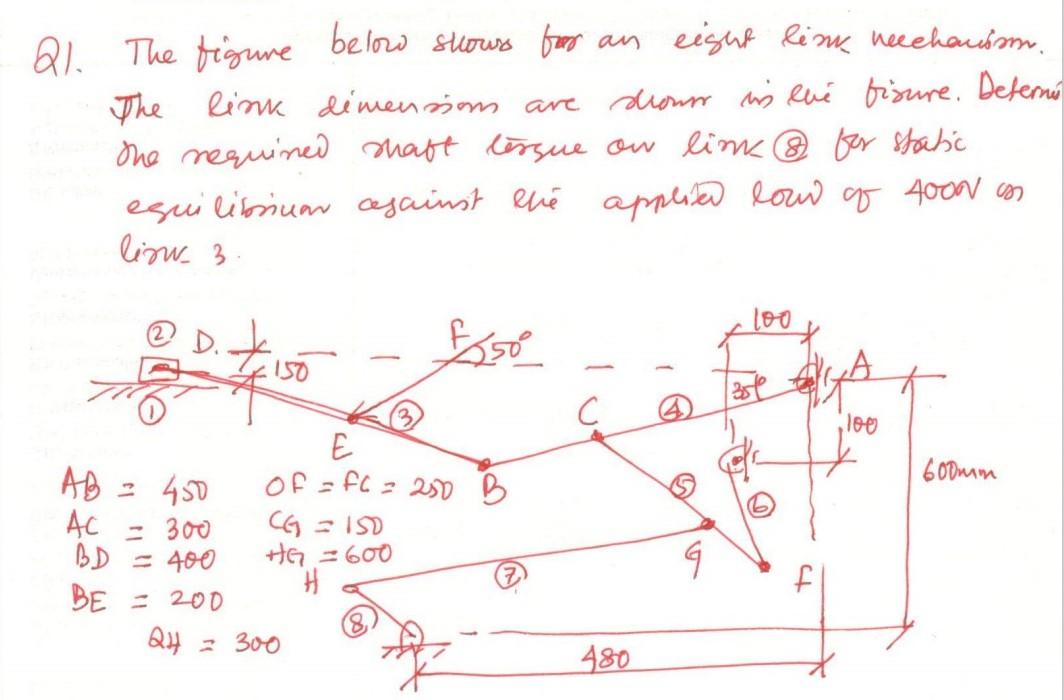 Q1. The figure below shows for an eight link mechanism.
The link dimensions are shown in the figure. Determi
the required shaft torque on link ⑧ for static
equilibrium against the applied load of 400N on
link 3.
100
② D. F 50° A
150 35°
① ③ C ④ 100
E
B 600mm
AB = 450 OF = FC = 250
AC = 300 CG = 150
BD = 400 HG = 600
BE = 200
QH = 300
⑤ ⑥
G F
H ⑦
⑧
480